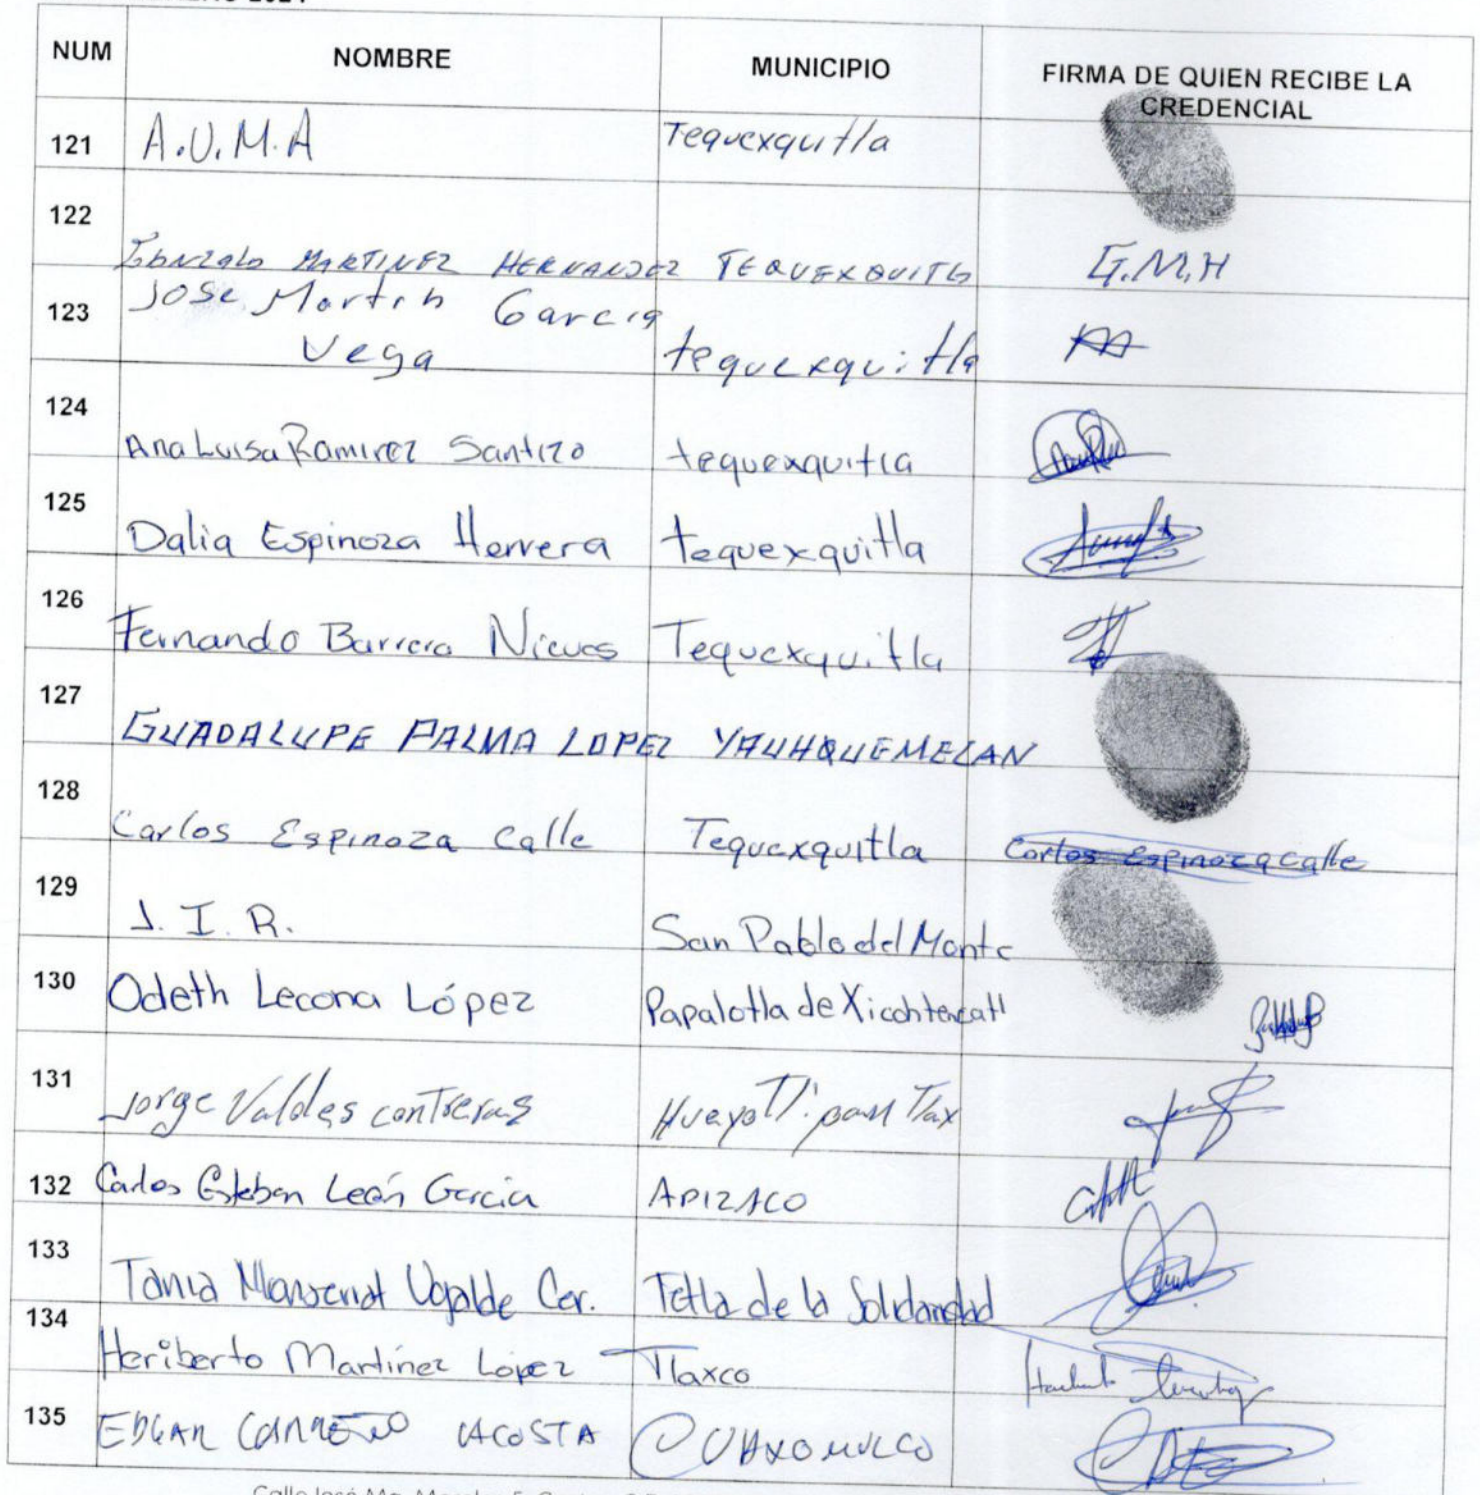 NUM NOMBRE MUNICIPIO FIRMA DE QUIEN RECIBE LA
CREDENCIAL
121 A.U.M.A Tequexquitla
122 Gonzalo MARTINEZ HERNANDEZ TEQUEXQUITLA G.M.H
123 Jose Martin Garcia
Vega tequexquitla
124 Ana Luisa Ramirez Santizo tequexquitla
125 Dalia Espinoza Herrera tequexquitla
126 Fernando Barrera Nieves Tequexquitla
127 GUADALUPE PALMA LOPEZ YAUHQUEMECAN
128 Carlos Espinoza Calle Tequexquitla Carlos Espinoza Calle
129 J. I. R. San Pablo del Monte
130 Odeth Lecona López Papalotla de Xicohtencatl
131 Jorge Valdes contreras
132 Carlos Esteban León Garcia APIZACO
133 Tania Monserrat Ugalde Cer. Tetla de la Solidaridad
134 Heriberto Martínez López Tlaxco
135 EDGAR CARREÑO ACOSTA CUAXOMULCO